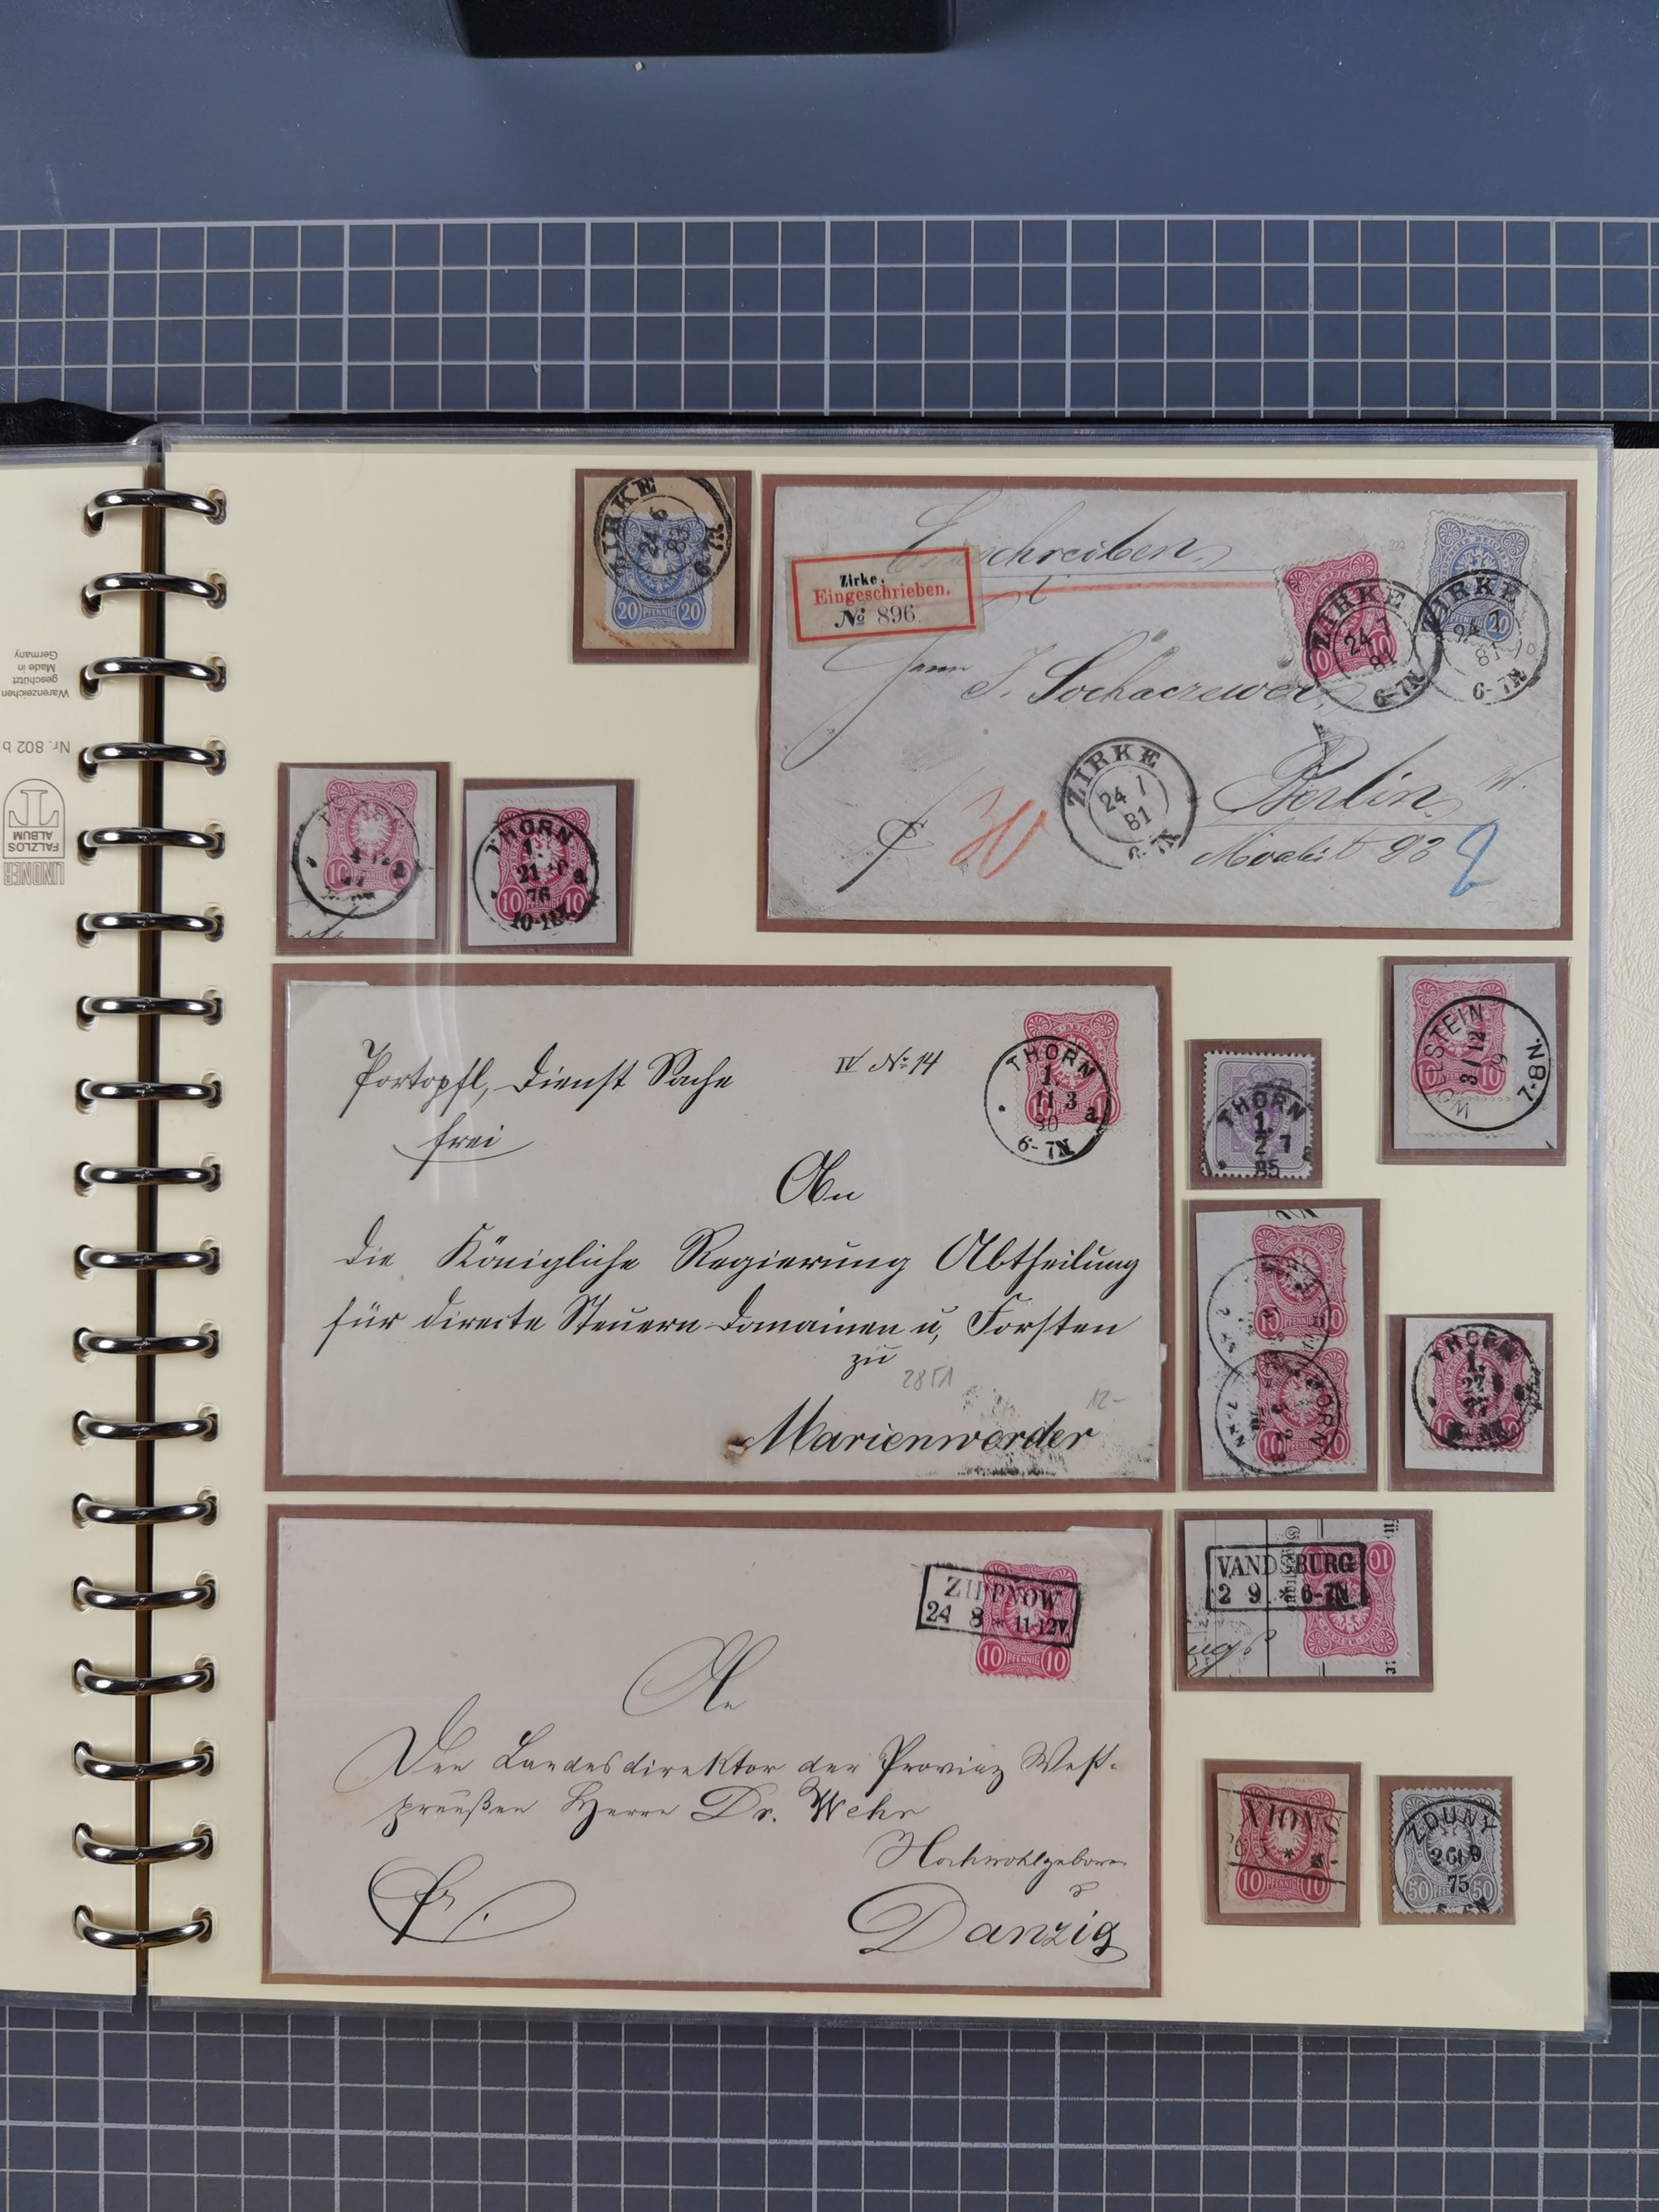 ZIRKE
24 6
83
20 PFENNIG 20
Einschreiben.
Zirke.
Eingeschrieben.
№ 896.
ZIRKE
24 7
81
6-7N
ZIRKE
24 7
81
6-7N
Herrn J. Sochaczewer
ZIRKE
24 7
81
6-7N
Berlin W.
93
THORN
1.
21
a
76
10
10
Portopfl, Dienst Sache
IV № 14
frei
THORN
1.
11 3
80
a
6-7N
An
die Königliche Regierung Abtheilung
für directe Steuern Domainen u, Forsten
zu
2851
12-
Marienwerder
WOLLSTEIN
3/12
79
7-8N.
10
THORN
1.
2 7
85
THORN
10
10
THORN
1.
27
77
ZIPPNOW
24 8 * 11-12V
10 PFENNIG 10
An
Den Landesdirektor der Provinz West-
preußen Herrn Dr. Wehr
Hochwohlgeboren
Danzig
fr.
VANDSBURG
2 9 * 6-7N
10
XIONS
10 PFENNIGE 10
ZDUNY
26 9
75
50
50
Warenzeichen
geschützt
Made in
Germany
Nr. 802 b
LINDNER
FALZLOS
ALBUM